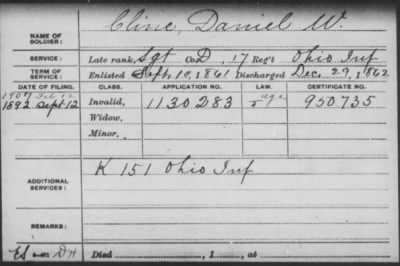 Cline, Daniel W.
NAME OF
SOLDIER:
SERVICE: Late rank, Sgt Co. D, 17 Reg't Ohio Inf
TERM OF
SERVICE: Enlisted Sept. 10, 1861 Discharged Dec. 29, 1862
DATE OF FILING. CLASS. APPLICATION NO. LAW. CERTIFICATE NO.
1907 Feb 12 age
1892 Sept 12 Invalid, 1130283 950735
Widow,
Minor,
K 151 Ohio Inf
ADDITIONAL
SERVICES:
REMARKS:
Died , 1 , at